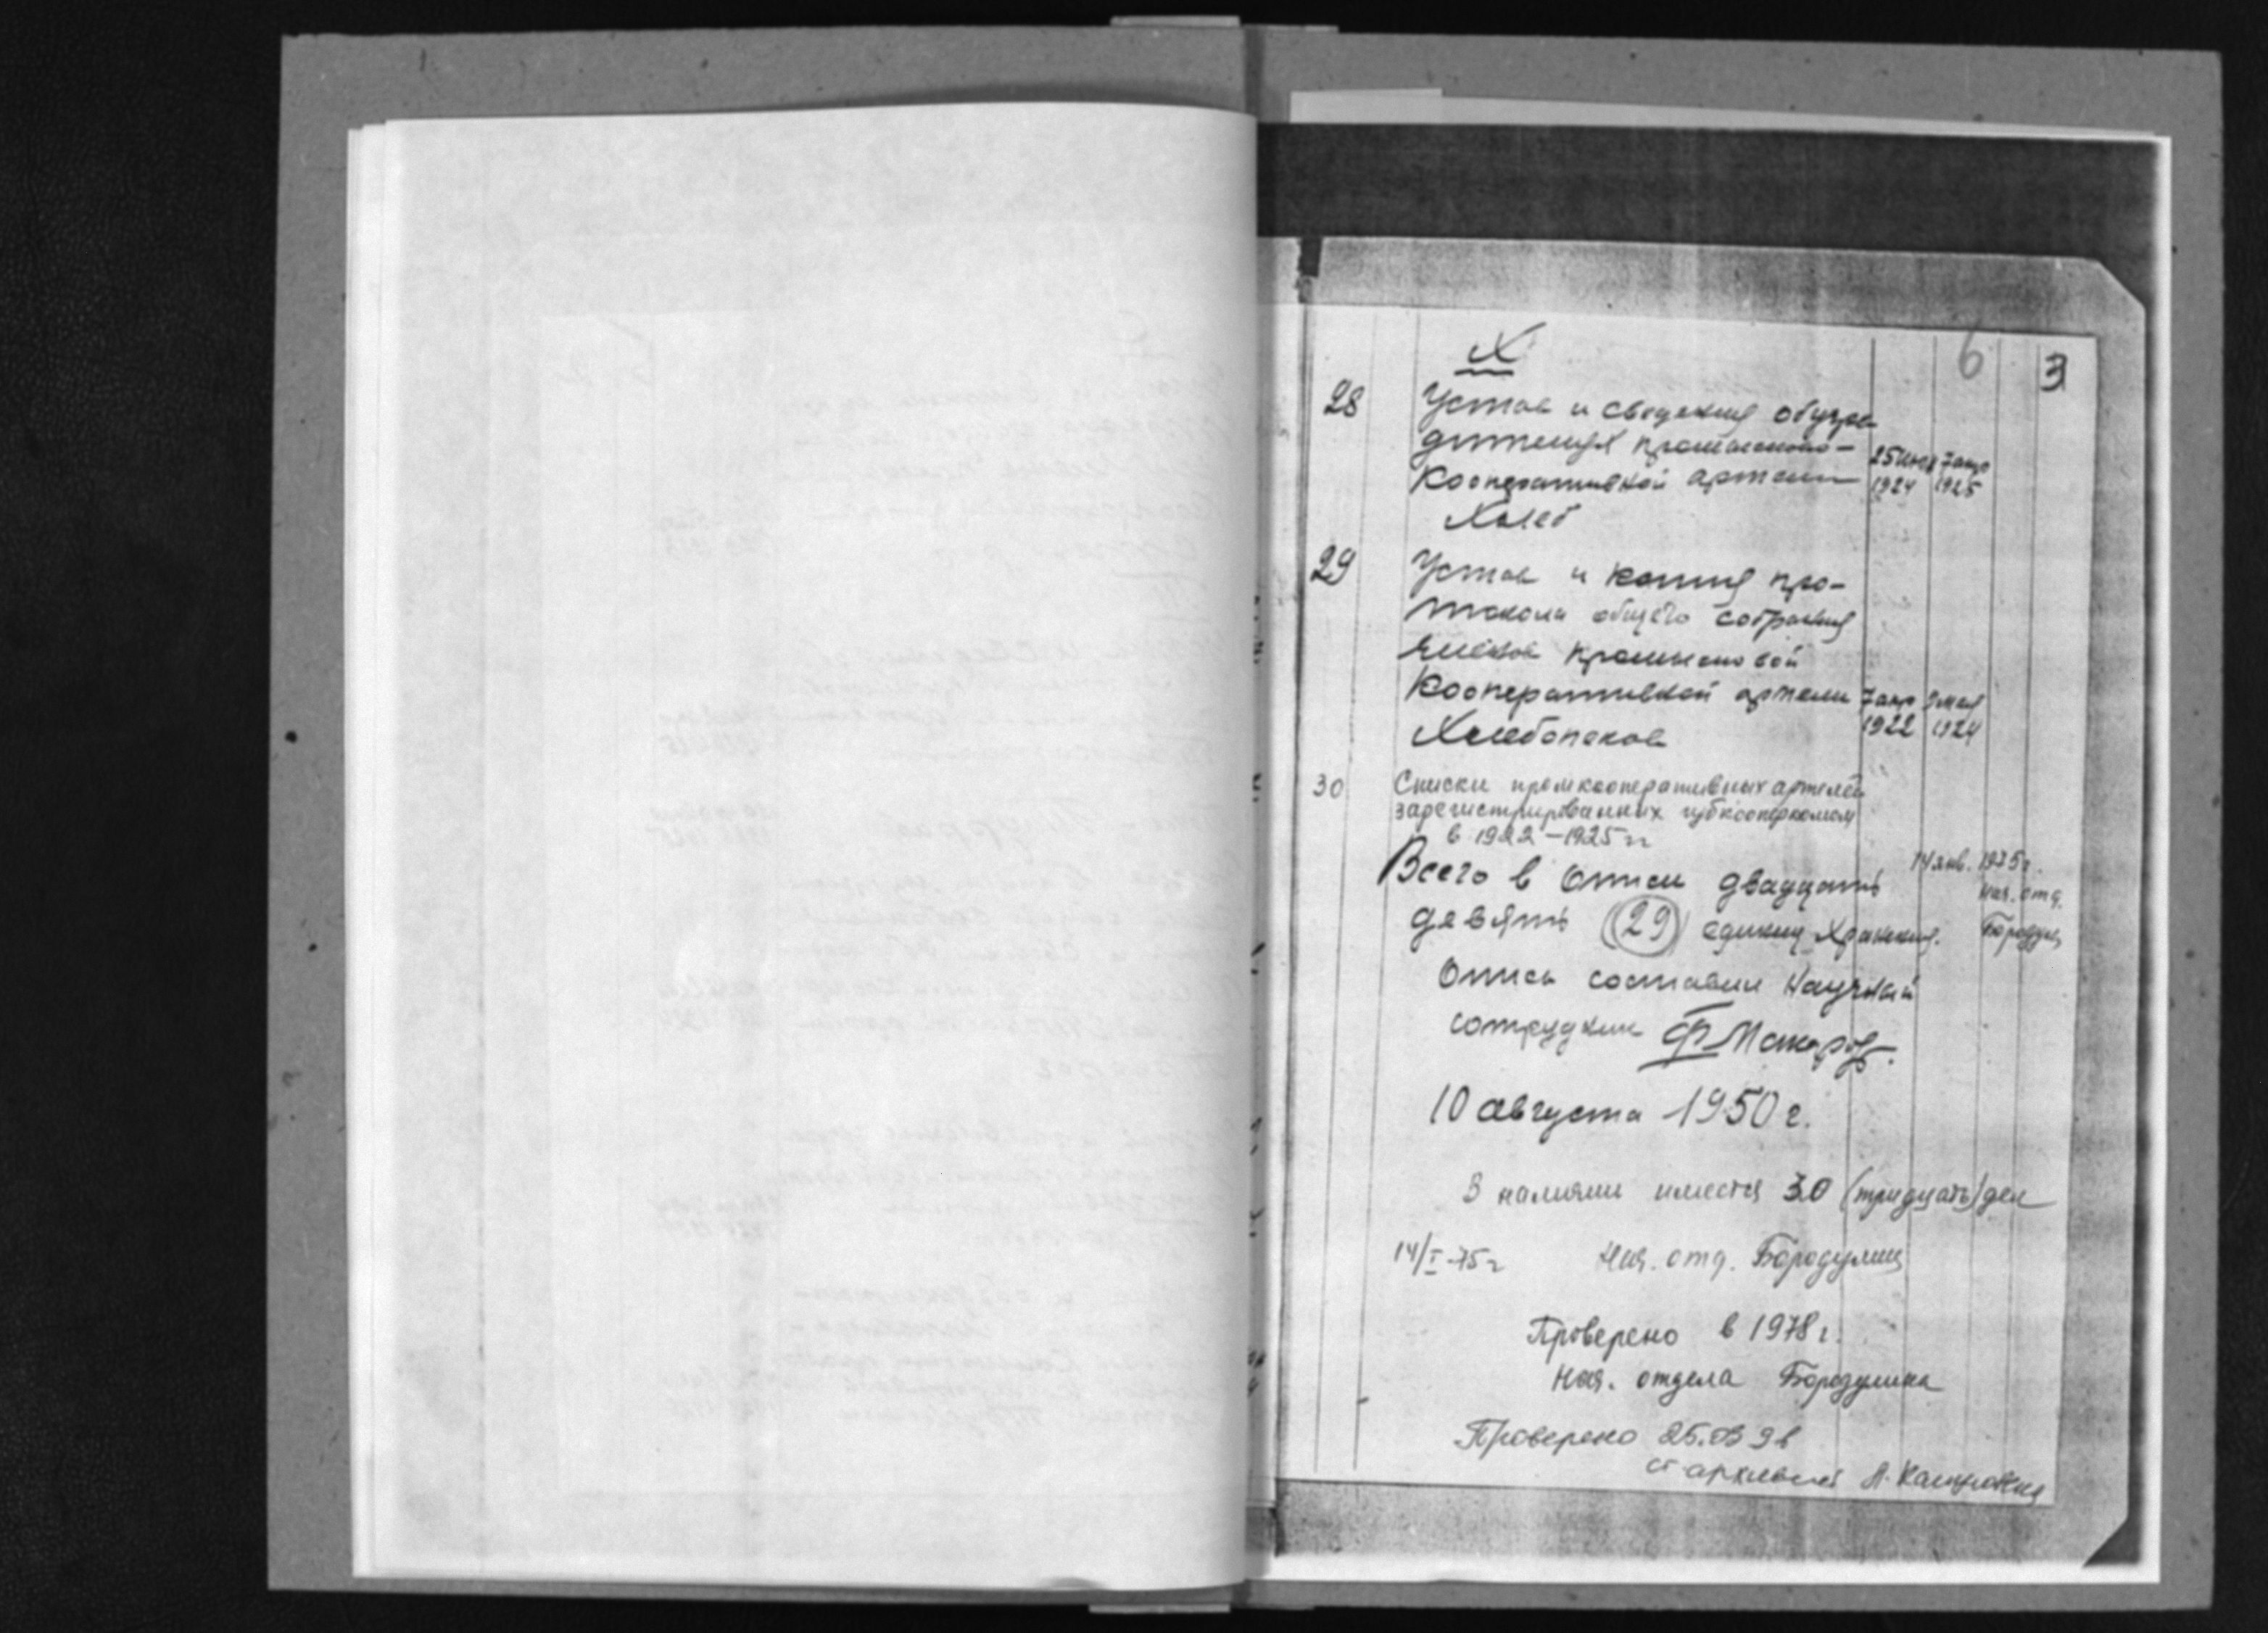 6
3
Х
28 Устав и сведения об учре-
дителях промыслово-
кооперативной артели 25 июля 1924 7 апр 1925
Хлеб
29 Устав и копия про-
токола общего собрания
членов промысловой
кооперативной артели 7 апр 1922 9 мая 1924
Хлебопеков
30 Списки промкооперативных артелей
зарегистрированных губкооперкомом
в 1922-1925 гг
Всего в описи двадцать 14 янв. 1975г.
девять (29) единиц хранения. Нач. отд.
Бородулин
Опись составил научный
сотрудник Ф Макаров.
10 августа 1950 г.
В наличии имеется 30 (тридцать) дел
14/I-75г Нач. отд. Бородулин
Проверено в 1978 г.
Нач. отдела Бородулина
Проверено 25.03
ст архивист А.